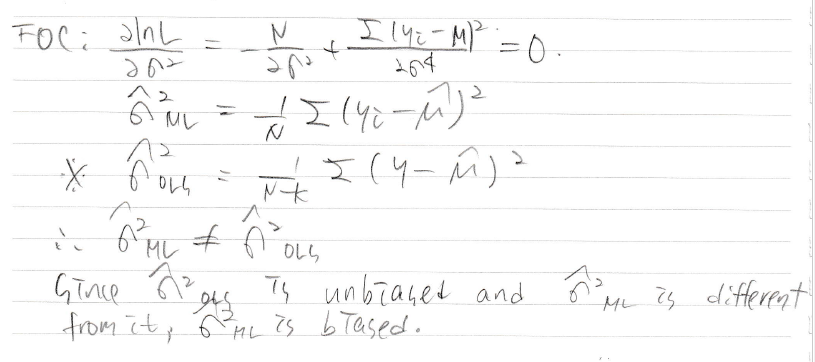 FOC: ∂lnL/∂σ² = -N/2σ² + Σ(yi-M)²/2σ⁴ = 0.
σ̂²ML = 1/N Σ(yi-μ̂)²
※ σ̂²OLS = 1/N-k Σ(y-μ̂)²
∴ σ̂²ML ≠ σ̂²OLS
Since σ̂²OLS is unbiased and σ̂²ML is different
from it, σ̂²ML is biased.